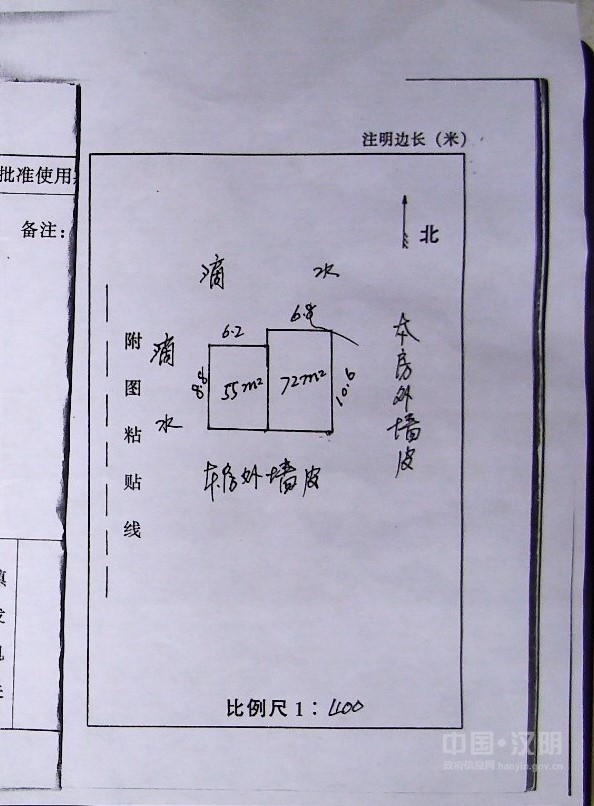 注明边长（米）
批准使用
备注：
北
滴 水
6.2
6.8
滴水
8.8
55m²
72m²
10.6
本房外墙皮
本房外墙皮
附图粘贴线
填发机关
比例尺1：400
中国·汉阴
政府信息网 hanyin.gov.cn